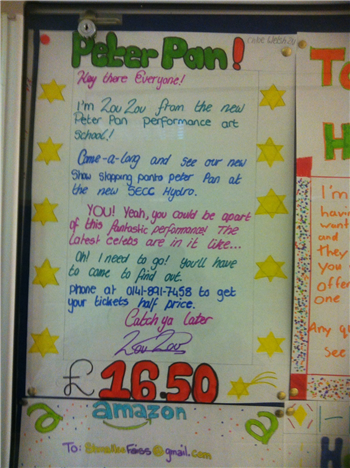 Peter Pan!
Hey there Everyone!
I'm Zou Zou from the new
Peter Pan performance art
school!
Come-a-long and see our new
Show stopping panto peter Pan at
the new SECC Hydro.
YOU! Yeah, you could be apart
of this fantastic performance! The
latest celebs are in it like...
Oh! I need to go! You'll have
to come to find out.
Phone at 0141-891-7458 to get
your tickets half price.
Catch ya later
Zou Zou
£16.50
a amazon a
To: @gmail.com
To
H
I'm
havin
want
and
they
you
offer
one
Any q
See
H